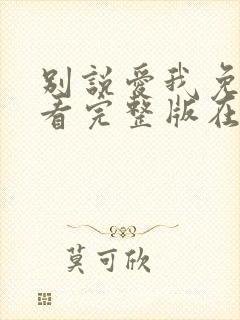 別說愛我免
看完整版在
莫可欣